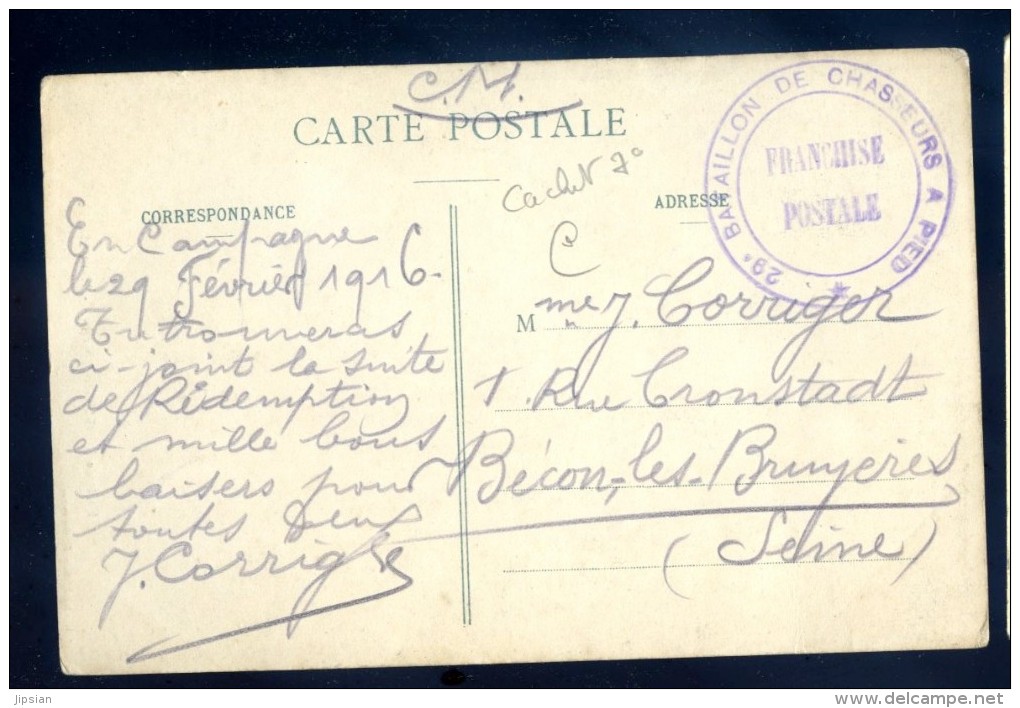 C.M.
CARTE POSTALE
29e BATAILLON DE CHASSEURS A PIED
FRANCHISE
POSTALE
Cachet 7e
CORRESPONDANCE
ADRESSE
En Campagne
le 29 Février 1916.
Tu trouveras
ci-joint la suite
de Rédemption
et mille bons
baisers pour
toutes deux
J. Corriger
C
M me J. Corriger
1. Rue Cronstadt
Bécon-les-Bruyères
(Seine)
Jipsian
delcampe.net